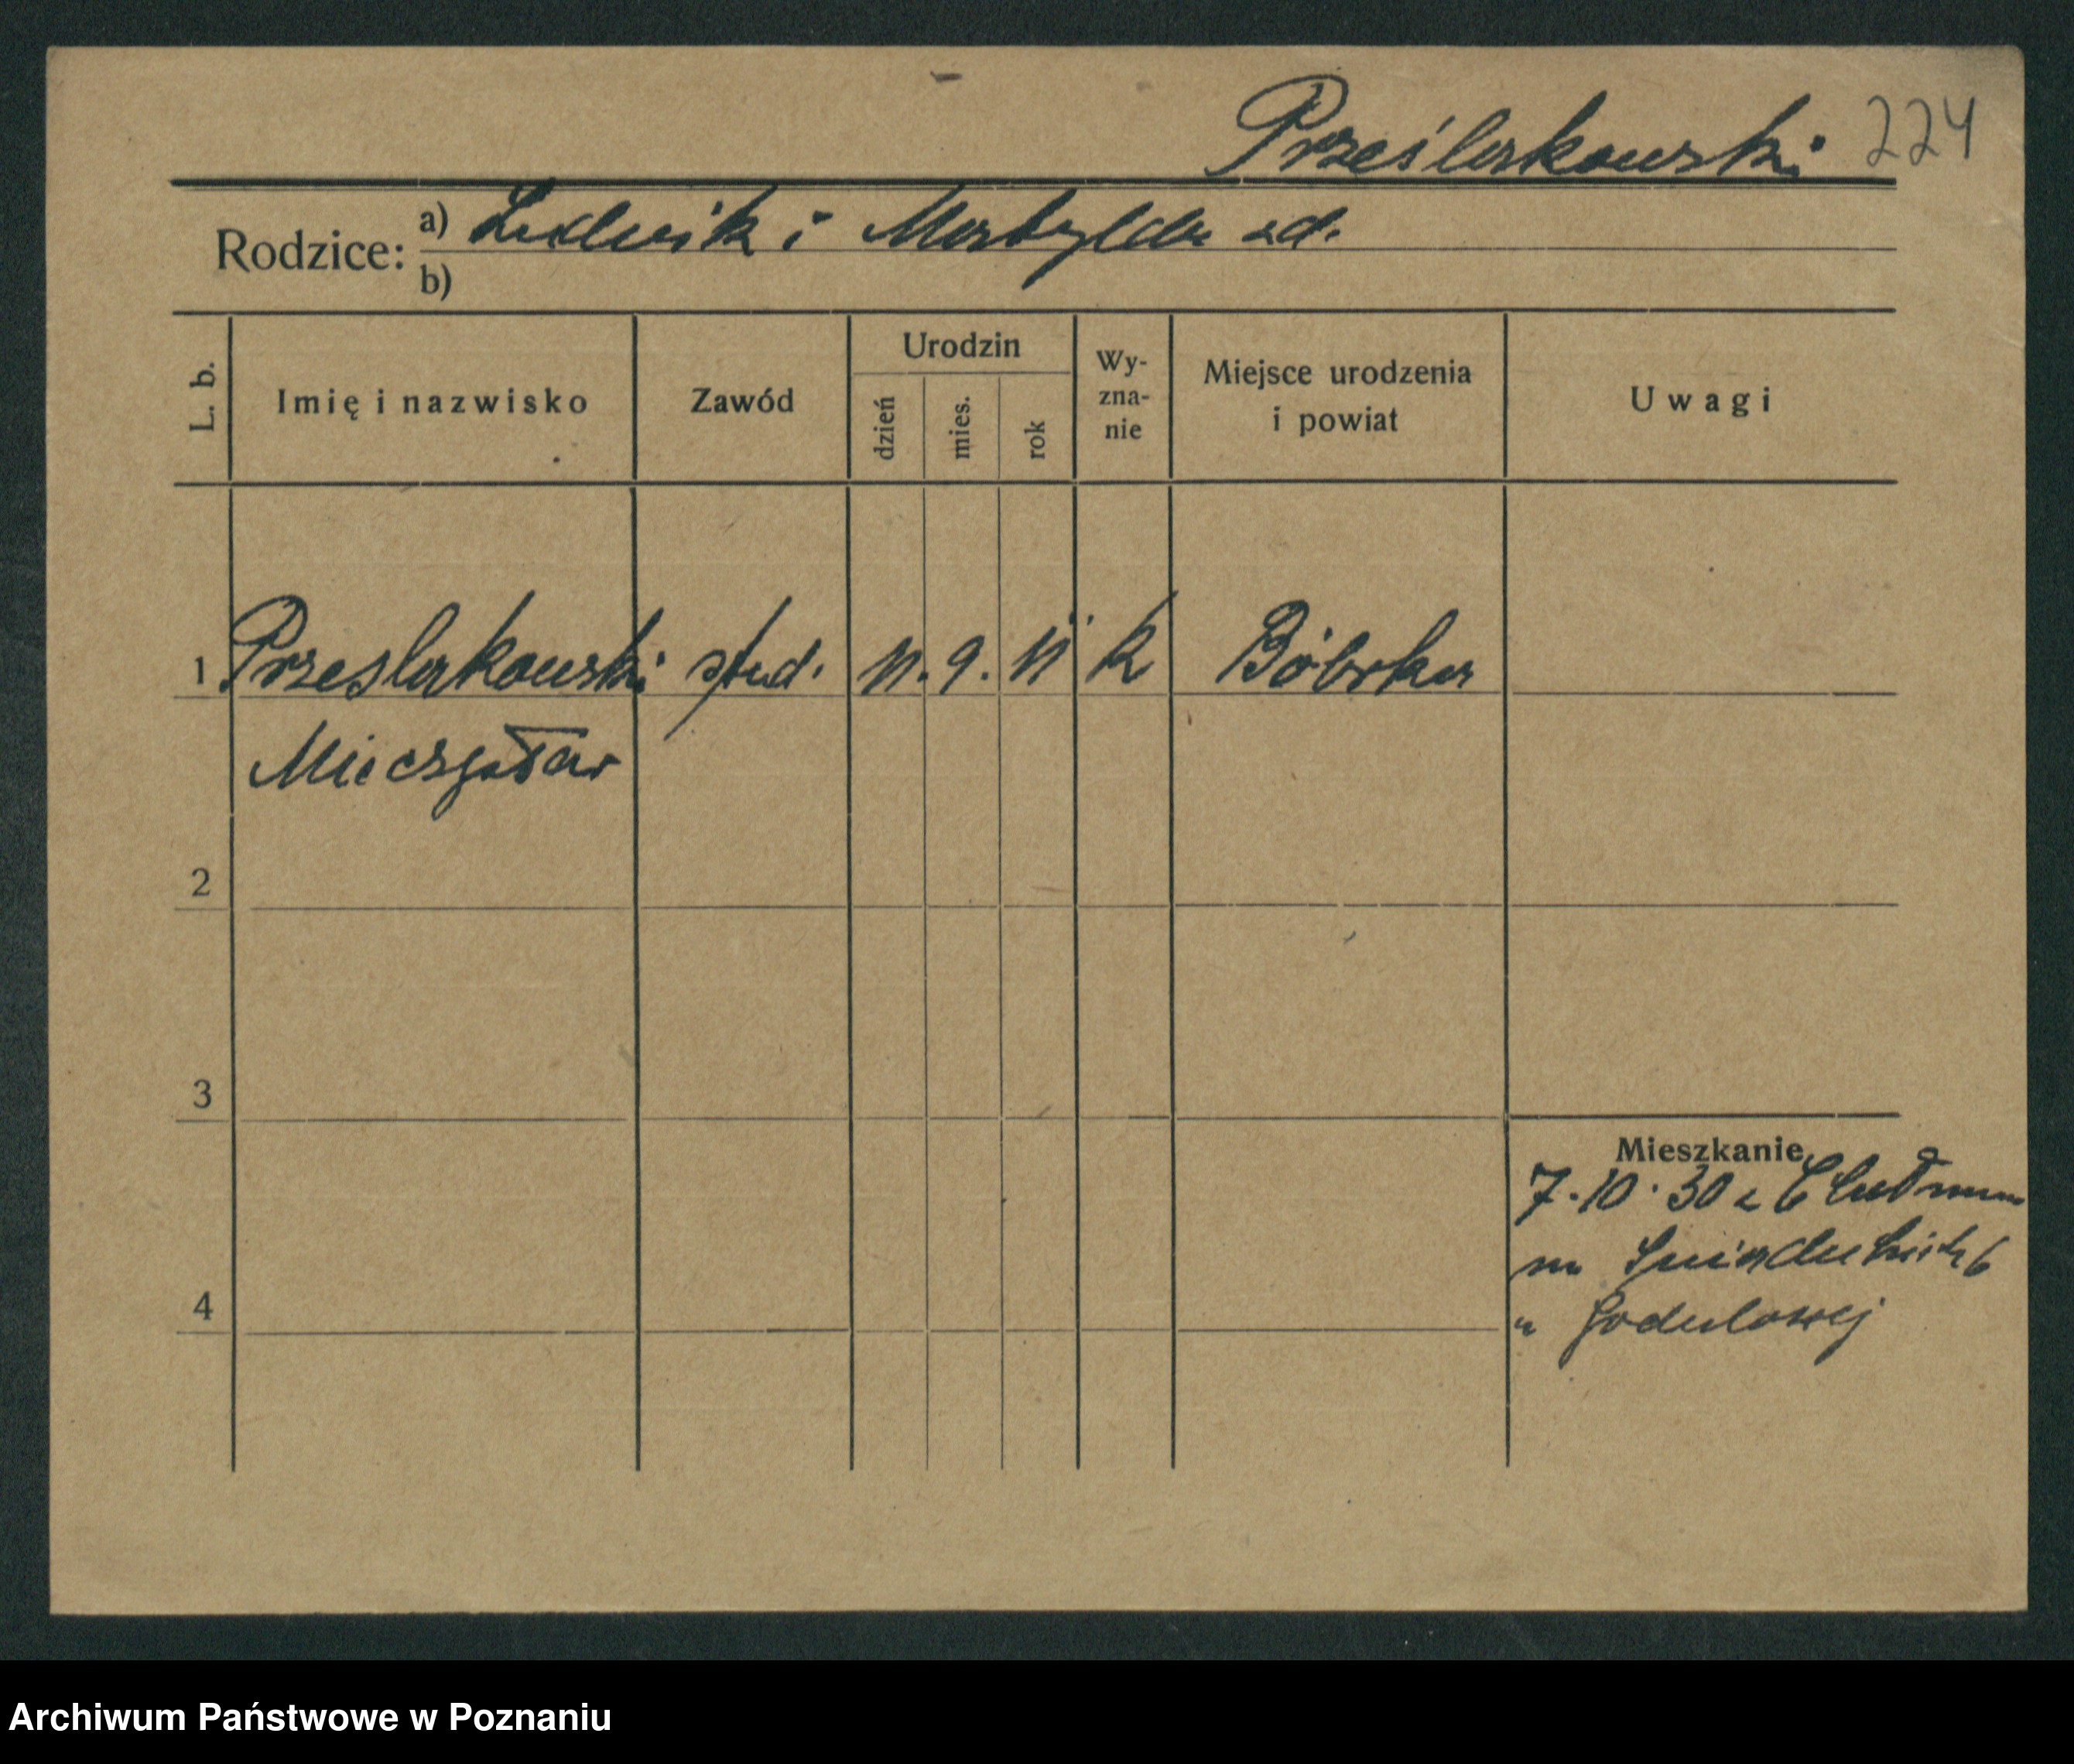 Prześlakowski 224
Rodzice: a) Ludwik i Matylda zd.
b)
L. b. Imię i nazwisko Zawód Urodzin dzień mies. rok Wy-zna-nie Miejsce urodzenia i powiat Uwagi
1 Przeslakowski stud. 11. 9. 11 k Bóbrka
Mieczysław
2
3
4
Mieszkanie
7.10.30 z Chełmna
na Śniadeckich 6
u Godulowej
Archiwum Państwowe w Poznaniu